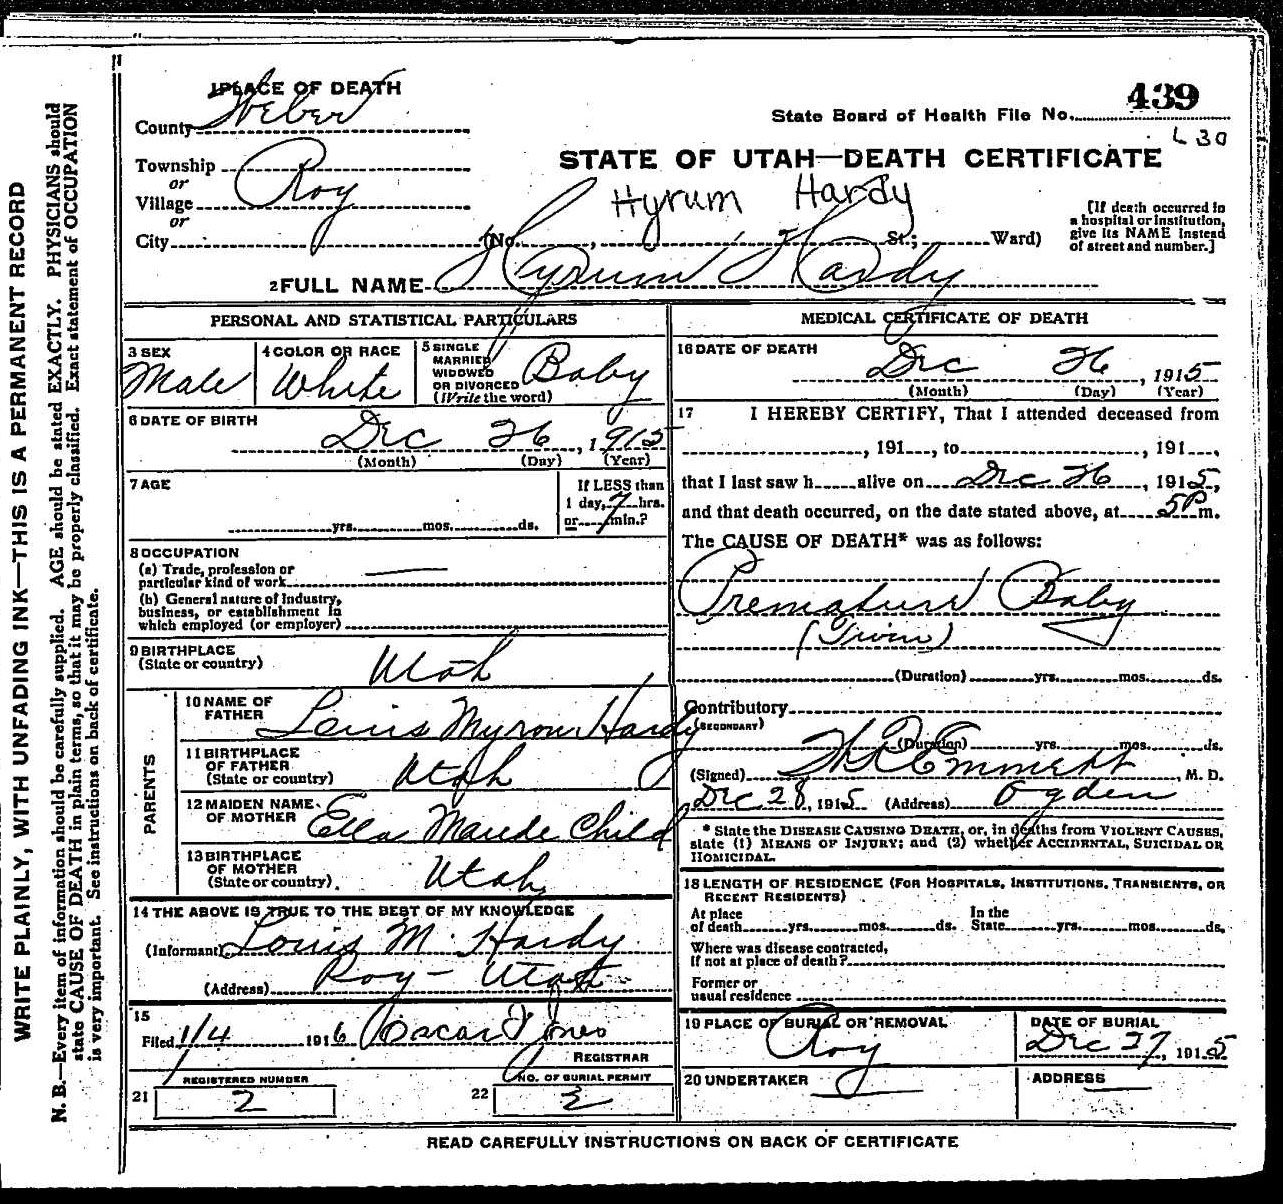 WRITE PLAINLY, WITH UNFADING INK—THIS IS A PERMANENT RECORD
N. B.—Every item of information should be carefully supplied. AGE should be stated EXACTLY. PHYSICIANS should
state CAUSE OF DEATH in plain terms, so that it may be properly classified. Exact statement of OCCUPATION
is very important. See instructions on back of certificate.
1 PLACE OF DEATH
County Weber
Township
or
Village Roy
or
City
State Board of Health File No. 439
L 30
STATE OF UTAH—DEATH CERTIFICATE
Hyrum Hardy
(No. , St.; Ward)
[If death occurred in
a hospital or institution,
give its NAME instead
of street and number.]
2 FULL NAME Hyrum Hardy
PERSONAL AND STATISTICAL PARTICULARS
3 SEX
Male
4 COLOR OR RACE
White
5 SINGLE
MARRIED
WIDOWED
OR DIVORCED
(Write the word)
Baby
6 DATE OF BIRTH
Dec 26, 1915
(Month) (Day) (Year)
7 AGE
yrs. mos. ds.
If LESS than
1 day, 7 hrs.
or min.?
8 OCCUPATION
(a) Trade, profession or
particular kind of work
(b) General nature of industry,
business, or establishment in
which employed (or employer)
9 BIRTHPLACE
(State or country)
Utah
PARENTS
10 NAME OF
FATHER
Louis Myron Hardy
11 BIRTHPLACE
OF FATHER
(State or country)
Utah
12 MAIDEN NAME
OF MOTHER
Ella Maude Child
13 BIRTHPLACE
OF MOTHER
(State or country)
Utah
14 THE ABOVE IS TRUE TO THE BEST OF MY KNOWLEDGE
(Informant) Louis M. Hardy
(Address) Roy - Utah
15
Filed 1/4 1916 Oscar Jones
REGISTRAR
REGISTERED NUMBER
21 2
NO. OF BURIAL PERMIT
22 2
MEDICAL CERTIFICATE OF DEATH
16 DATE OF DEATH
Dec 26, 1915
(Month) (Day) (Year)
17 I HEREBY CERTIFY, That I attended deceased from
, 191 , to , 191 ,
that I last saw h alive on Dec 26, 1915,
and that death occurred, on the date stated above, at 5P m.
The CAUSE OF DEATH* was as follows:
Premature Baby
(Twin)
(Duration) yrs. mos. ds.
Contributory
(SECONDARY)
(Duration) yrs. mos. ds.
(Signed) Emmett, M. D.
Dec 28, 1915 (Address) Ogden
* State the DISEASE CAUSING DEATH, or, in deaths from VIOLENT CAUSES,
state (1) MEANS OF INJURY; and (2) whether ACCIDENTAL, SUICIDAL OR
HOMICIDAL.
18 LENGTH OF RESIDENCE (FOR HOSPITALS, INSTITUTIONS, TRANSIENTS, OR
RECENT RESIDENTS)
At place
of death yrs. mos. ds.
In the
State yrs. mos. ds.
Where was disease contracted,
If not at place of death?
Former or
usual residence
19 PLACE OF BURIAL OR REMOVAL
Roy
DATE OF BURIAL
Dec 27, 1915
20 UNDERTAKER
ADDRESS
READ CAREFULLY INSTRUCTIONS ON BACK OF CERTIFICATE